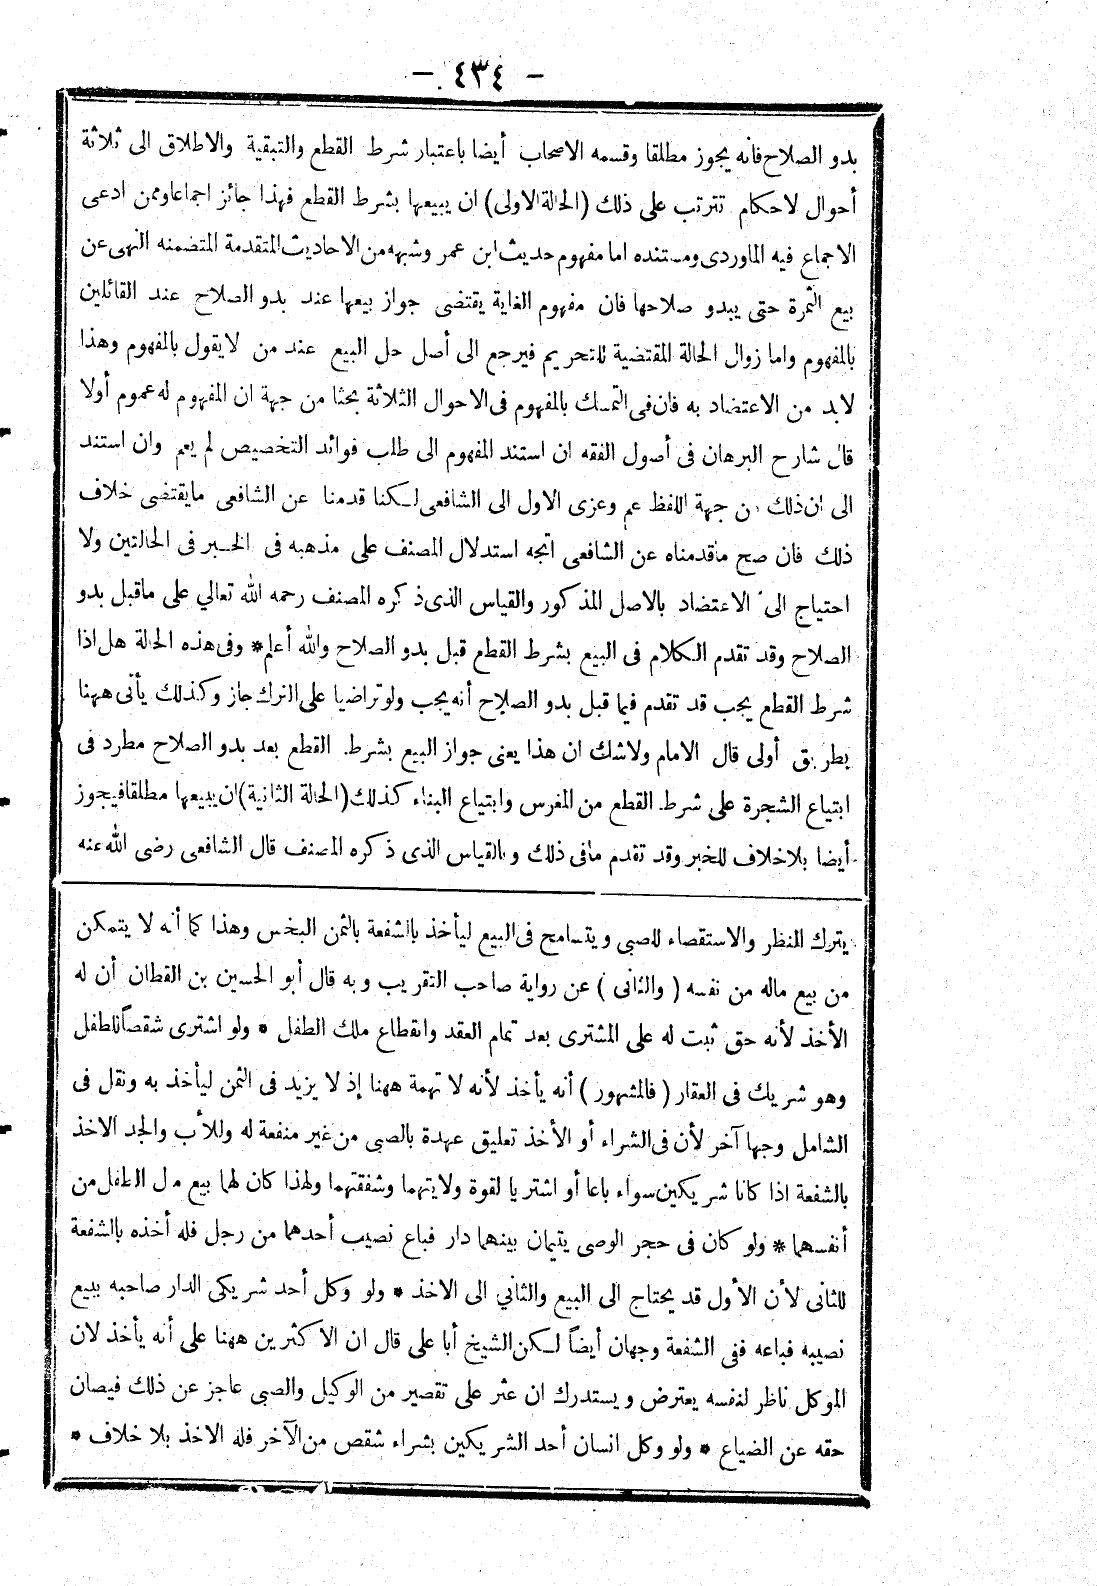 - ٤٣٤ -
بدو الصلاح فأنه يجوز مطلقا وقسمه الاصحاب أيضا باعتبار شرط القطع والتبقية والاطلاق الى ثلاثة
أحوال لاحكام تترتب على ذلك (الحالة الاولى) ان يبيعها بشرط القطع فهذا جائز اجماعا وممن ادعى
الاجماع فيه الماوردى ومستنده اما مفهوم حديث ابن عمر وشبهه من الاحاديث المتقدمة المتضمنه النهى عن
بيع الثمرة حتى يبدو صلاحها فان مفهوم الغاية يقتضى جواز بيعها عند بدو الصلاح عند القائلين
بالمفهوم واما زوال الحالة المقتضية للتحريم فيرجع الى أصل حل البيع عند من لا يقول بالمفهوم وهذا
لابد من الاعتضاد به فان فى التمسك بالمفهوم فى الاحوال الثلاثة بحثا من جهة ان المفهوم له عموم أولا
قال شارح البرهان فى أصول الفقه ان استند المفهوم الى طلب فوائد التخصيص لم يعم وان استند
الى ان ذلك من جهة اللفظ عم وعزى الاول الى الشافعى لكنا قدمنا عن الشافعى مايقتضى خلاف
ذلك فان صح ماقدمناه عن الشافعى اتجه استدلال المصنف على مذهبه فى الخبر فى الحالتين ولا
احتياج الى الاعتضاد بالاصل المذكور والقياس الذى ذكره المصنف رحمه الله تعالي على ماقبل بدو
الصلاح وقد تقدم الكلام فى البيع بشرط القطع قبل بدو الصلاح والله أعلم * وفى هذه الحالة هل اذا
شرط القطع يجب قد تقدم فيما قبل بدو الصلاح أنه يجب ولو تراضيا على الترك جاز وكذلك يأتى ههنا
بطريق أولى قال الامام ولاشك ان هذا يعنى جواز البيع بشرط القطع بعد بدو الصلاح مطرد فى
ابتياع الشجرة على شرط القطع من المغرس وابتياع البناء كذلك (الحالة الثانية) ان يبيعها مطلقا فيجوز
أيضا بلا خلاف للخبر وقد تقدم مافى ذلك وبالقياس الذى ذكره المصنف قال الشافعى رضى الله عنه
يترك النظر والاستقصاء للصبى ويتسامح فى البيع ليأخذ بالشفعة بالثمن البخس وهذا كما أنه لا يتمكن
من بيع ماله من نفسه ( والثانى ) عن رواية صاحب التقريب وبه قال أبو الحسين بن القطان أن له
الأخذ لأنه حق ثبت له على المشترى بعد تمام العقد وانقطاع ملك الطفل * ولو اشترى شقصاً للطفل
وهو شريك فى العقار ( فالمشهور ) أنه يأخذ لأنه لا تهمة ههنا إذ لا يزيد فى الثمن ليأخذ به ونقل فى
الشامل وجها آخر لأن فى الشراء أو الأخذ تعليق عهدة بالصبى من غير منفعة له وللأب والجد الاخذ
بالشفعة اذا كانا شريكين سواء باعا أو اشتريا لقوة ولايتهما وشفقتهما ولهذا كان لهما بيع مال الطفل من
أنفسهما * ولو كان فى حجر الوصى يتيمان بينهما دار فباع نصيب أحدهما من رجل فله أخذه بالشفعة
للثانى لأن الأول قد يحتاج الى البيع والثاني الى الاخذ * ولو وكل أحد شريكى الدار صاحبه ببيع
نصيبه فباعه ففى الشفعة وجهان أيضاً لكن الشيخ أبا على قال ان الاكثرين ههنا على أنه يأخذ لان
الموكل ناظر لنفسه يعترض ويستدرك ان عثر على تقصير من الوكيل والصبى عاجز عن ذلك فيصان
حقه عن الضياع * ولو وكل انسان أحد الشريكين بشراء شقص من الآخر فله الاخذ بلا خلاف *